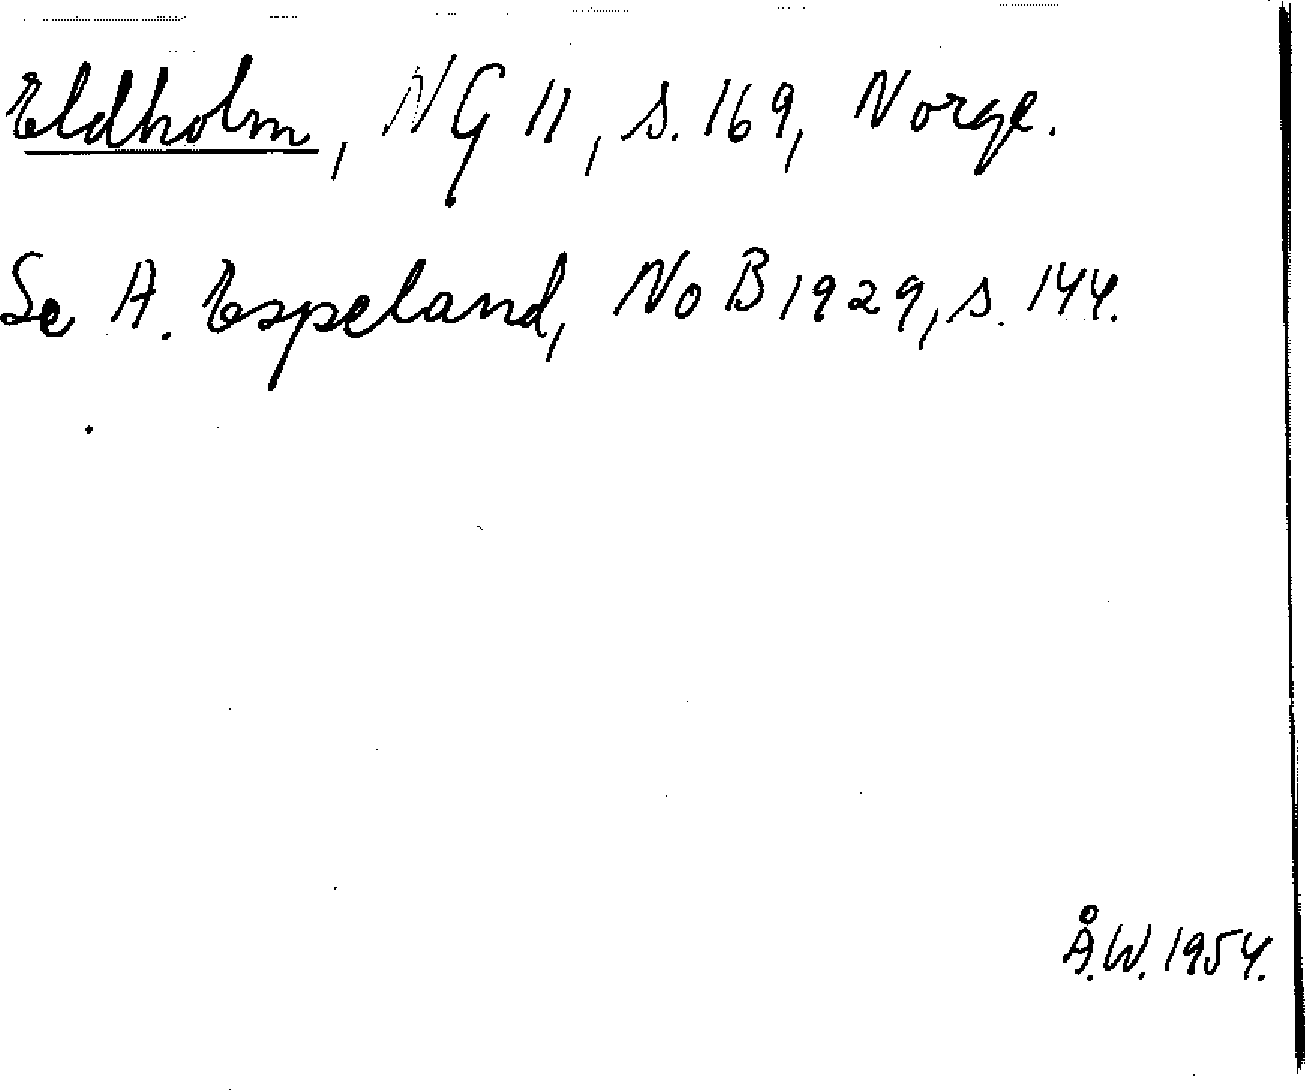 Eldholm, NG 11, s. 169, Norge.
Se A. Espeland, NoB 1929, s. 144.
Å.W. 1954.